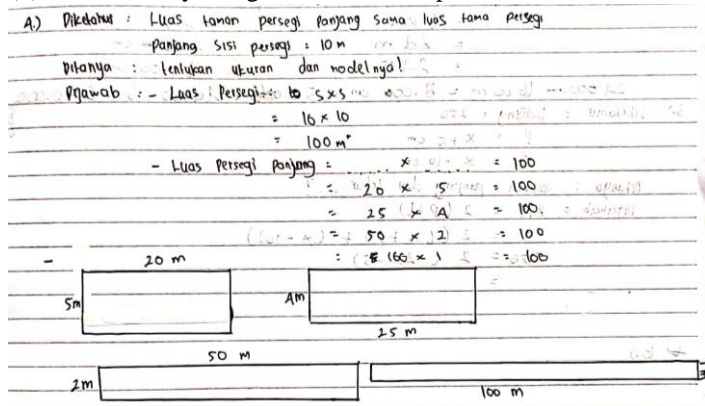 A.) Diketahui : Luas taman persegi panjang sama luas tama persegi
-Panjang sisi persegi : 10 m
Ditanya : tentukan ukuran dan modelnya!
Dijawab : - Luas Persegi : s x s
= 10 x 10
= 100 m²
- Luas Persegi Panjang = ...... x ...... = 100
= 20 x 5 = 100
= 25 x 4 = 100
= 50 x 2 = 100
= 100 x 1 = 100
-
20 m
5m
4m
25 m
50 m
2m
100 m